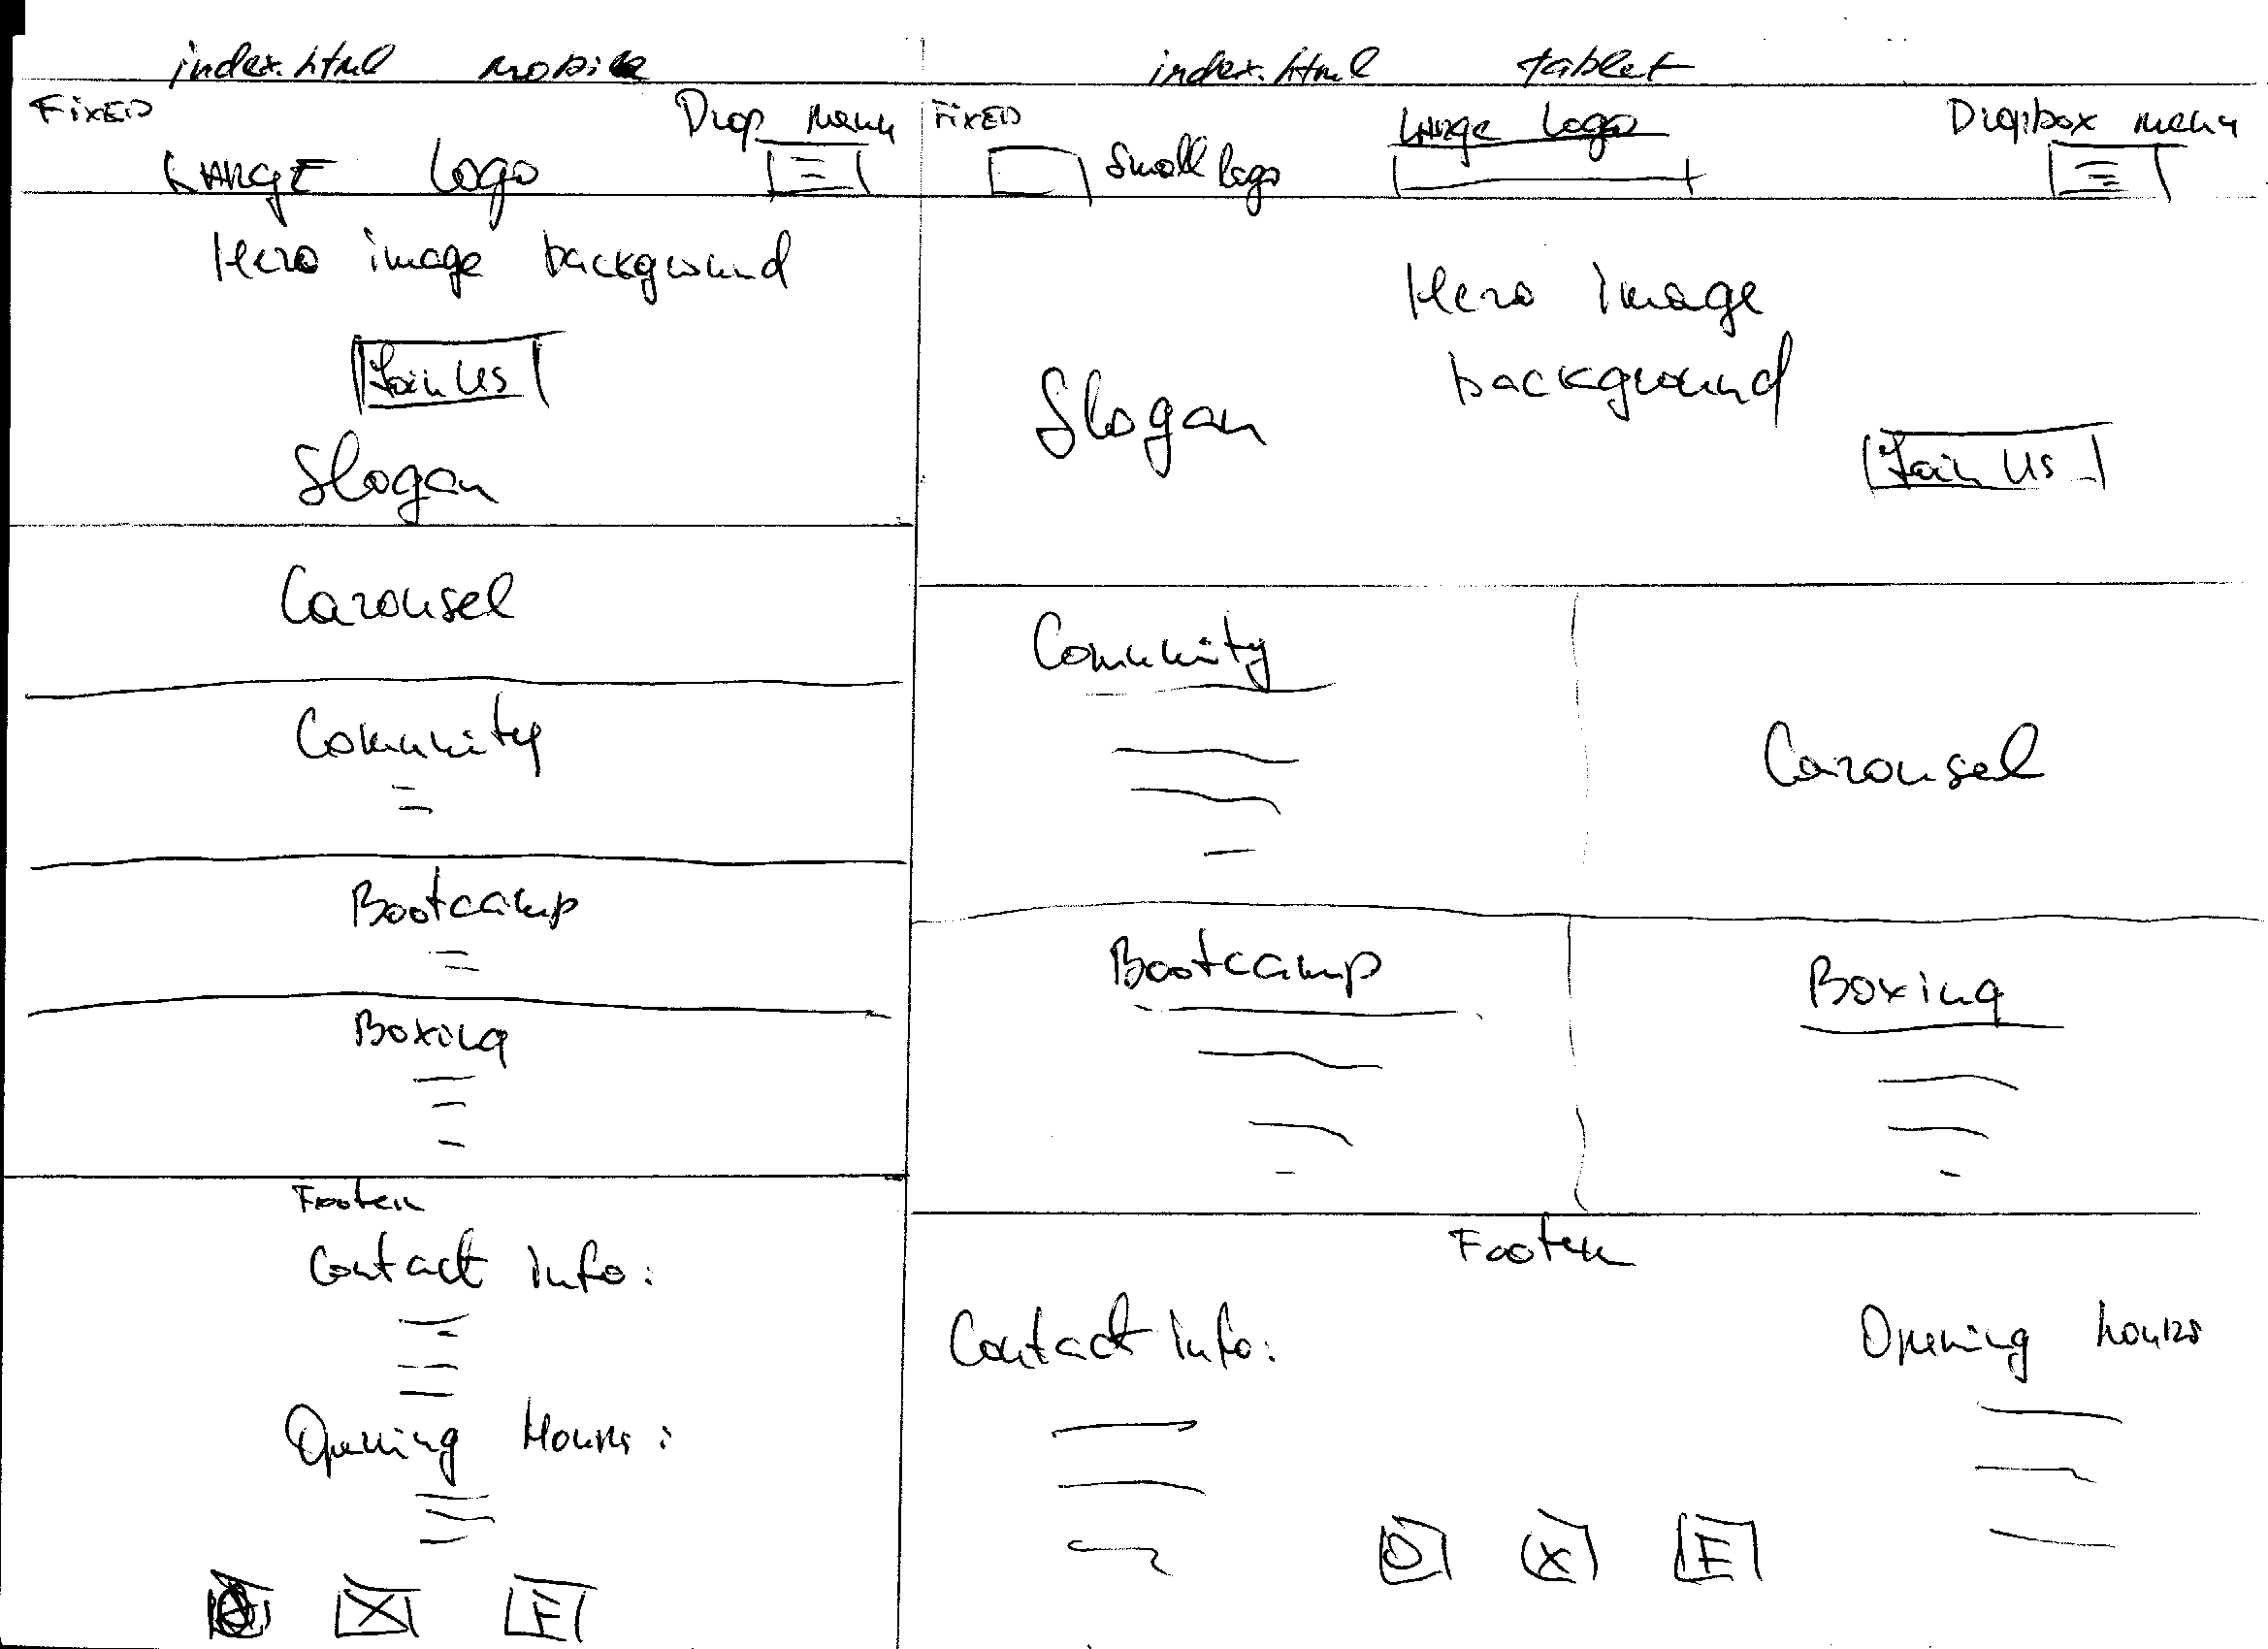 index.html mobile
FIXED
Drop menu
LARGE Logo
Hero image background
Join Us
Slogan
Carousel
Comunity
Bootcamp
Boxing
Footer
Contact info:
Opening Hours:
X F
index.html tablet
FIXED
Small logo
LARGE Logo
Dropbox menu
Hero image
background
Slogan
Join Us
Comunity
Carousel
Bootcamp
Boxing
Footer
Contact info:
Opening hours
O X F